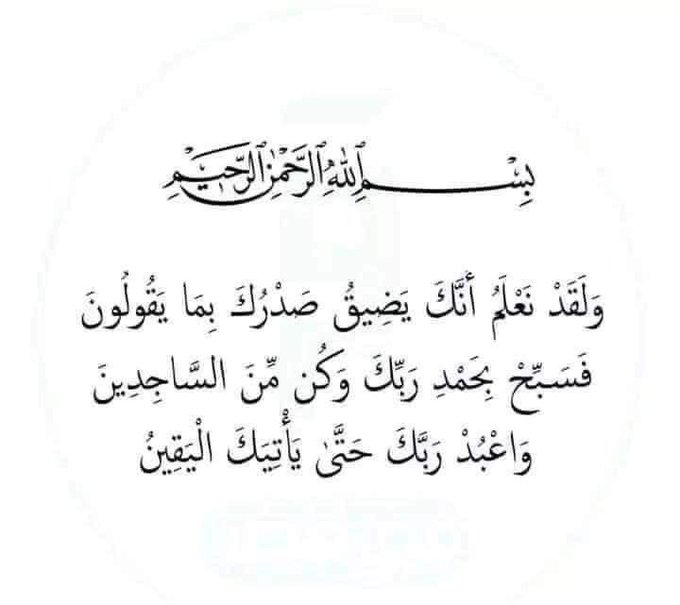 بِسْمِ اللهِ الرَّحْمٰنِ الرَّحِيْمِ
وَلَقَدْ نَعْلَمُ أَنَّكَ يَضِيقُ صَدْرُكَ بِمَا يَقُولُونَ
فَسَبِّحْ بِحَمْدِ رَبِّكَ وَكُن مِّنَ السَّاجِدِينَ
وَاعْبُدْ رَبَّكَ حَتَّىٰ يَأْتِيَكَ الْيَقِينُ